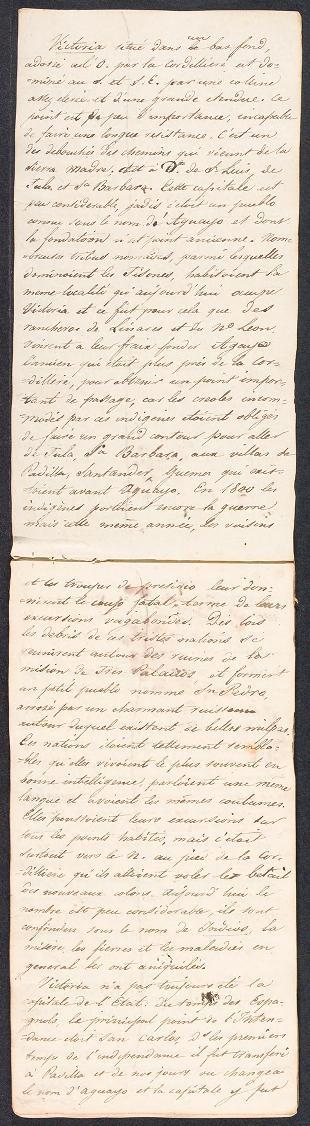 Victoria situé dans un bas fond,
adossé à l'O. par la Cordilliere et do-
miné au S. et S. E. par une colline
assez elevée et d'une grande etendue. Ce
point est peu d'importance, incapable
de faire une longue resistance. C'est un
des debouchés des chemins qui vienent de la
Sierra Madre, de S. Luis, de
Tula et Sta Barbara. Cette capitale est
peu considerable, jadis c'était un pueblo
connu sous le nom d'Aguayo et dont
la fondation n'est point ancienne. Nom-
breuses tribus nomades, parmi lesquelles
dominoient les Pisones, habitoient la
meme localité qu'aujourd'hui occupe
Victoria et ce fut pour cela que des
rancheros de Linares et du No Leon,
vinrent a leur fraix fonder Aguayo
l'ancien qui étoit plus près de la Cor-
dillière, pour obtenir un point impor-
tant de passage, car les creoles incom-
modés par ces indigènes étoient obligés
de faire un grand contour pour aller
de Tula, Sta Barbara, aux villas de
Padilla, Santander, Guemes qui exis-
toient avant Aguayo. En 1800 les
indigènes portoient encore la guerre
mais cette même année, les voisins
et les troupes de presidio leur don-
nerent le coup fatal, terme de leurs
excursions vagabondes. Dès lors
les debris de ces tristes nations se
reunirent autour des ruines de la
mision de Tres Palacios, et forment
un petit pueblo nommé Sn Pedro,
arrosé par un charmant ruisseau
autour duquel existent de belles milpas.
Ces nations étoient tellement sembla-
bles qu'elles vivoient le plus souvent en
bonne intelligence, parloient une meme
langue et avoient les mêmes coutumes.
Elles poussoient leurs excursions sur
tous les points habités, mais c'était
surtout vers le N. au pied de la Cor-
dilliere qu'ils alloient voler le bétail
des nouveaux colons. Aujourd'hui le
nombre est peu considerable, ils sont
confondus sous le nom de Indios, la
misère, les fievres et les maladies en
general les ont aniquilés.
Victoria n'a pas toujours été la
capitale de l'Etat. Du tems des Espa-
gnols, le principal point de l'Inten-
dance étoit San Carlos. Ds les premiers
temps de l'independance il fut transferé
à Padilla et de nos jours on changea
le nom d'Aguayo et la capitale y fut